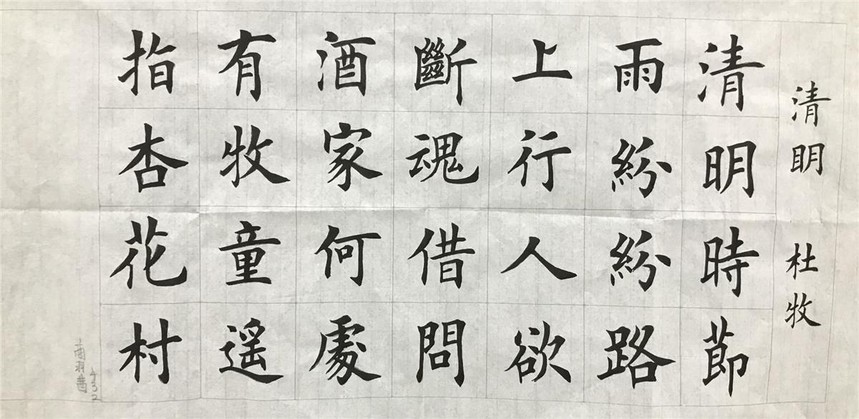 清明 杜牧
清明時節
雨紛紛路
上行人欲
斷魂借問
酒家何處
有牧童遥
指杏花村